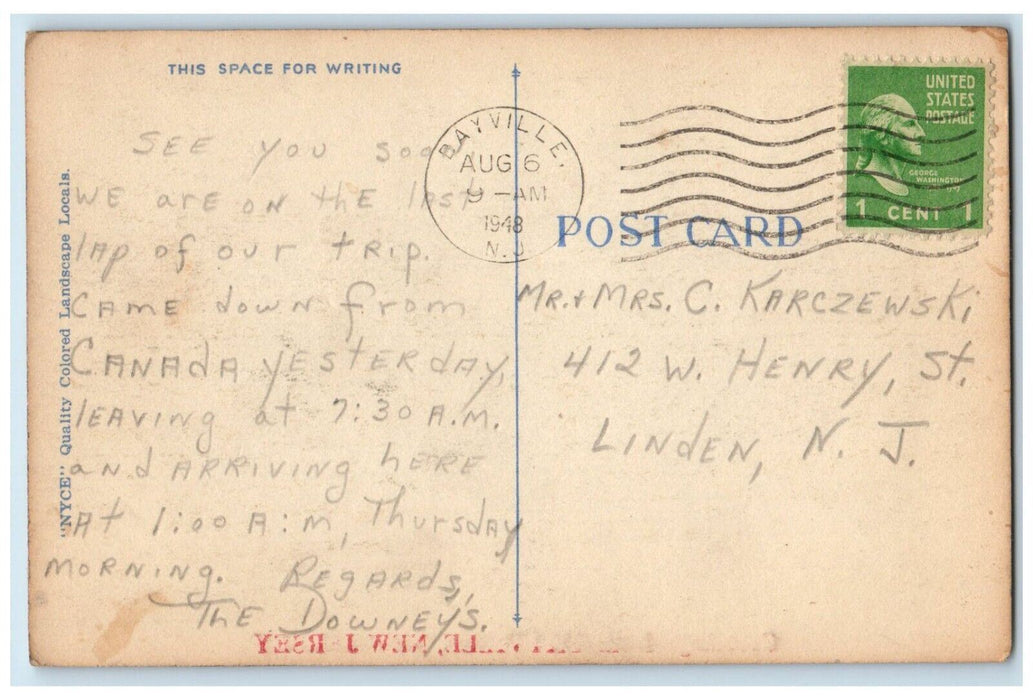 THIS SPACE FOR WRITING
"NYCE" Quality Colored Landscape Locals.
SEE you soon
WE ARE ON the last
lap of our trip.
CAME down from
CANADA yesterday,
leaving at 7:30 A.M.
and ARRIVING hERE
At 1:00 A:M, Thursday
MORNING. Regards,
The Downeys.
BAYVILLE,
AUG 6
9 - AM
1948
N. J.
UNITED
STATES
POSTAGE
GEORGE
WASHINGTON
1 CENT 1
POST CARD
MR. + MRS. C. KARCZEWSKi
412 W. HENRY, St.
LINDEN, N. J.
NEW JERSEY